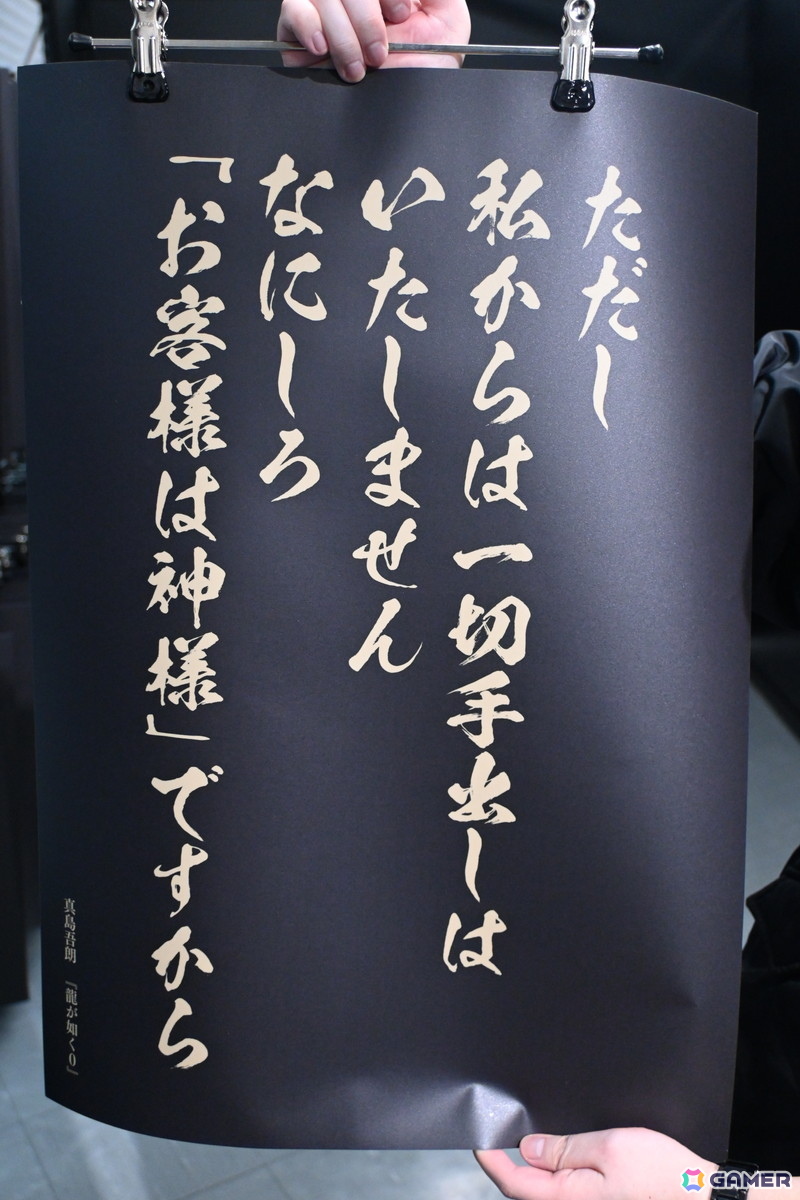 ただし
私からは一切手出しは
いたしません
なにしろ
「お客様は神様」ですから
真島吾朗 『龍が如く0』
GAMER